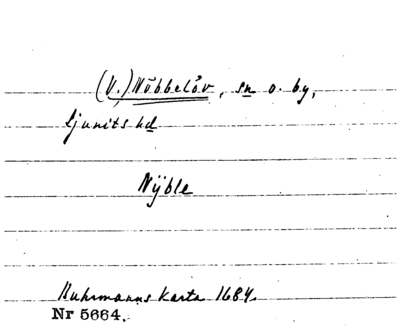 (V.) Nöbbelöv, sn o. by,
Ljunits hd
Nÿble
Buhrmanns Karta 1684.
Nr 5664.